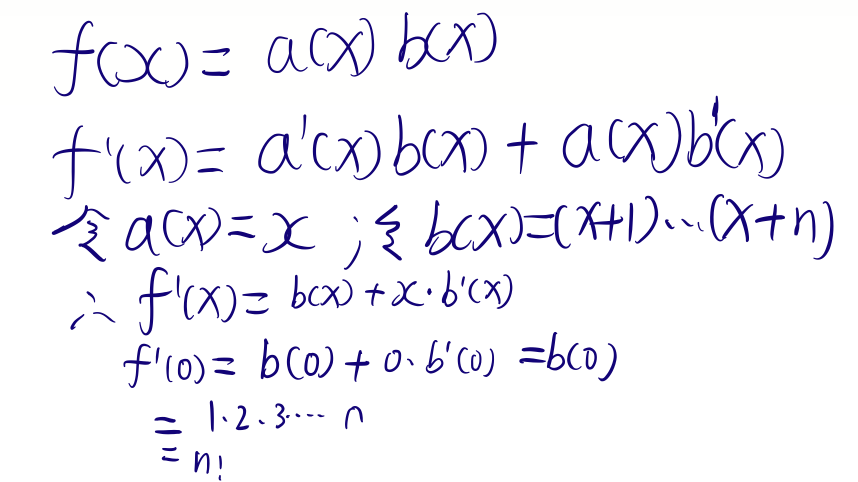 f(x) = a(x) b(x)
f'(x) = a'(x) b(x) + a(x) b'(x)
令 a(x) = x ; 令 b(x) = (x+1)…(x+n)
∴ f'(x) = b(x) + x·b'(x)
f'(0) = b(0) + 0·b'(0) = b(0)
= 1·2·3···· n
= n!